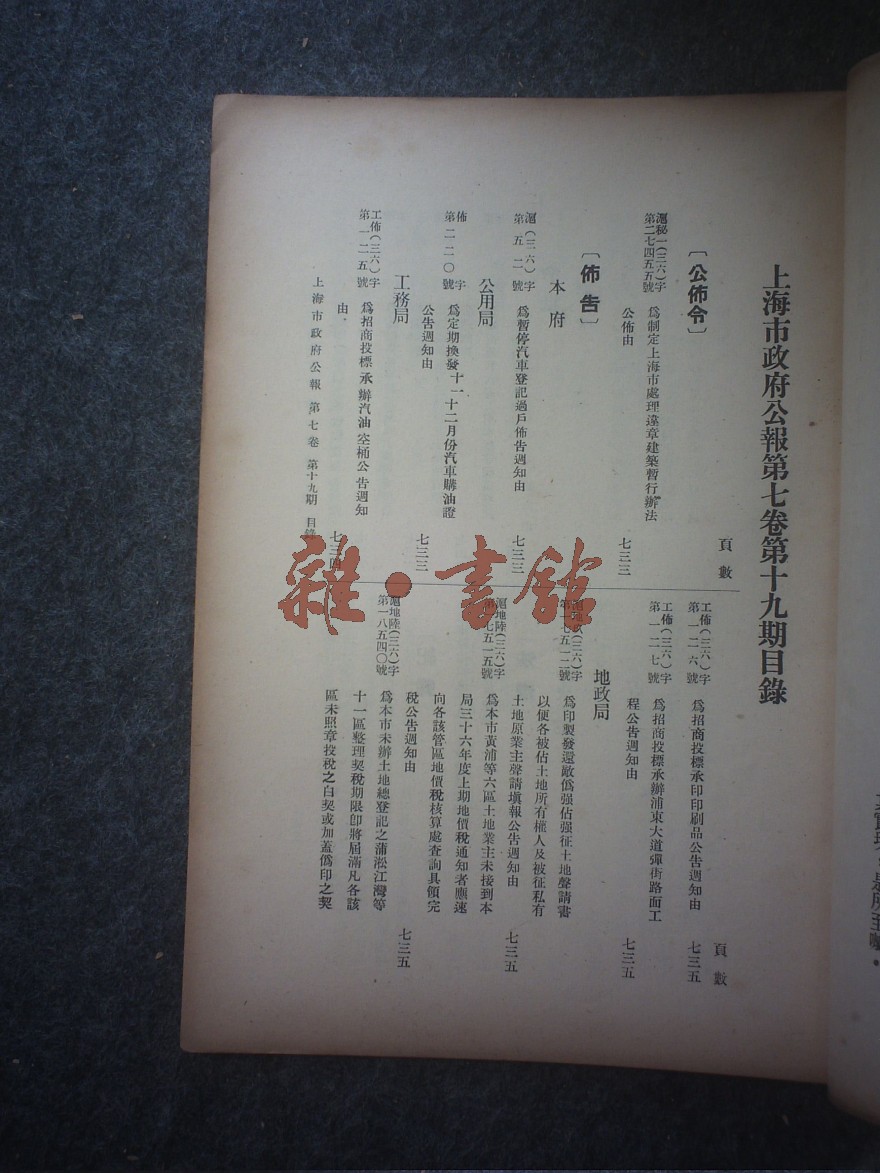 上海市政府公報第七卷第十九期目錄
頁數
〔公佈令〕
滬秘一(三六)字
第二七四五五號
為制定上海市處理違章建築暫行辦法
公佈由
七三三
〔佈告〕
本府
滬(三六)字
第五二號
為暫停汽車登記過戶佈告週知由
七三三
公用局
佈字
第二二〇號
為定期換發十一十二月份汽車購油證
公告週知由
七三三
工務局
工佈(三六)字
第一二五號
為招商投標承辦汽油空桶公告週知
由
七三四
頁數
工佈(三六)字
第一二六號
為招商投標承印印刷品公告週知由
七三五
工佈(三六)字
第一二七號
為招商投標承辦浦東大道彈街路面工
程公告週知由
七三五
地政局
(三六)字
七五一二號
為印製發還敵偽强佔强征土地聲請書
以便各被佔土地所有權人及被征私有
土地原業主聲請塡報公告週知由
七三五
滬地陸(三六)字
七五一五號
為本市黃浦等六區土地業主未接到本
局三十六年度上期地價稅通知者應速
向各該管區地價稅核算處查詢具領完
稅公告週知由
七三五
滬地陸(三六)字
第一八五四〇號
為本市未辦土地總登記之蒲淞江灣等
十一區整理契稅期限卽將屆滿凡各該
區未照章投稅之白契或加蓋僞印之契
上海市政府公報 第七卷 第十九期 目錄
雜·書館
是所至